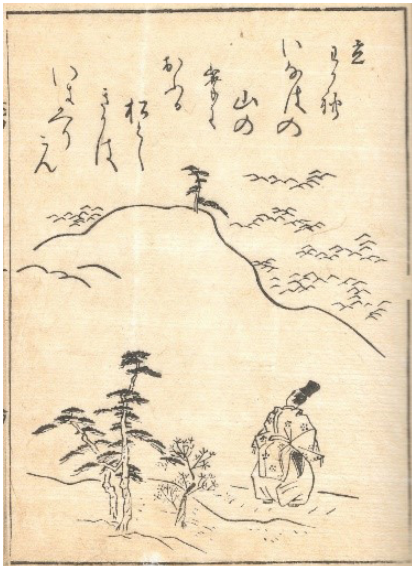 立
わかれ
いなはの
山の
峯に
おふる
松とし
きかは
いまかへり
こん